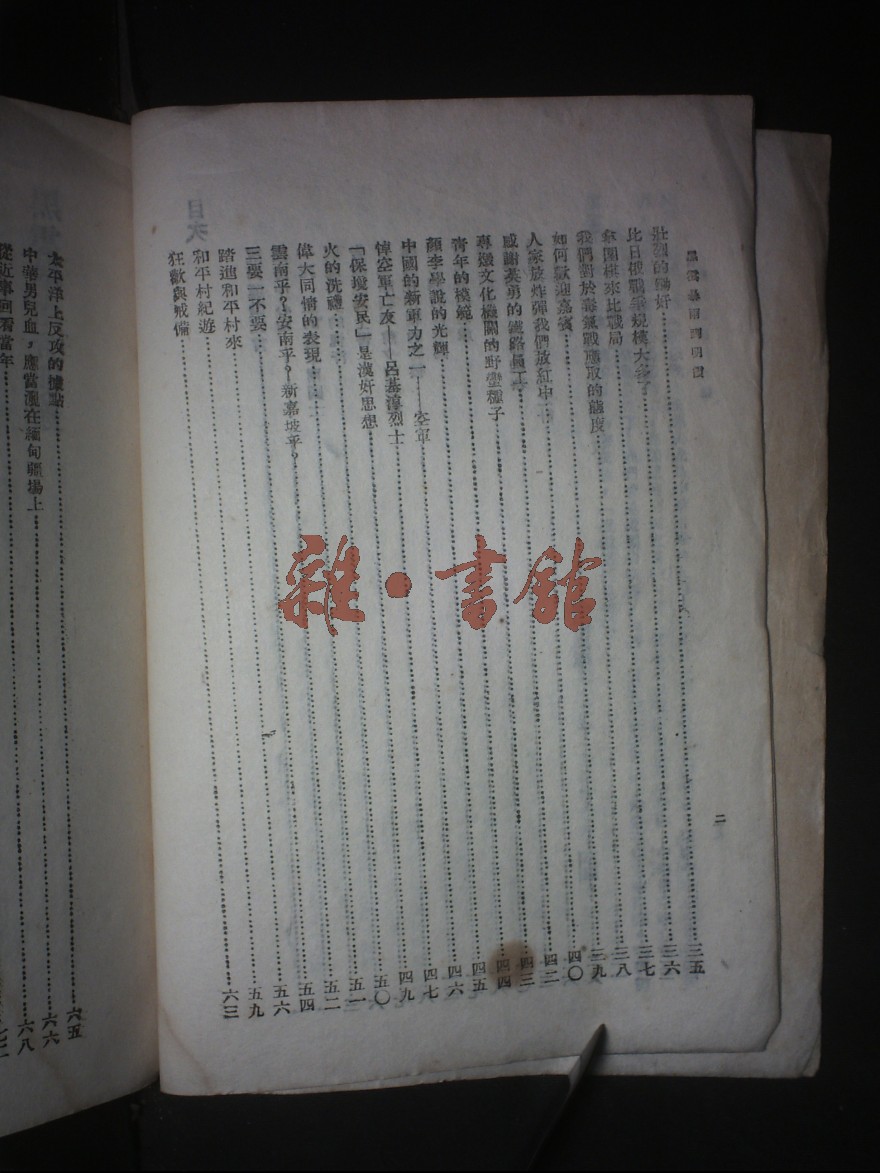 黑雲暴雨到明霞
二
壯烈的嗜好……三五
比日俄戰爭規模大多了……三六
拿圍棋來比戰局……三七
我們對於毒氣戰應取的態度……三八
如何歡迎嘉賓……三九
人家放炸彈我們放紅中……四〇
感謝英勇的鐵路員工……四二
專毀文化機關的野蠻種子……四三
青年的模範……四四
顏李學說的光輝……四五
中國的新軍力之一——空軍……四六
悼空軍亡友——呂基淳烈士……四七
「保境安民」是漢奸思想……四九
火的洗禮……五〇
偉大同情的表現……五一
雲南乎?安南乎?新嘉坡乎?……五二
三要一不要……五四
踏進和平村來……五六
和平村紀遊……五九
狂歡與戒備……六三
目次
太平洋上反攻的據點……六五
中華男兒血,應當灑在緬甸疆場上……六六
從近事回看當年……六八
雜·書館